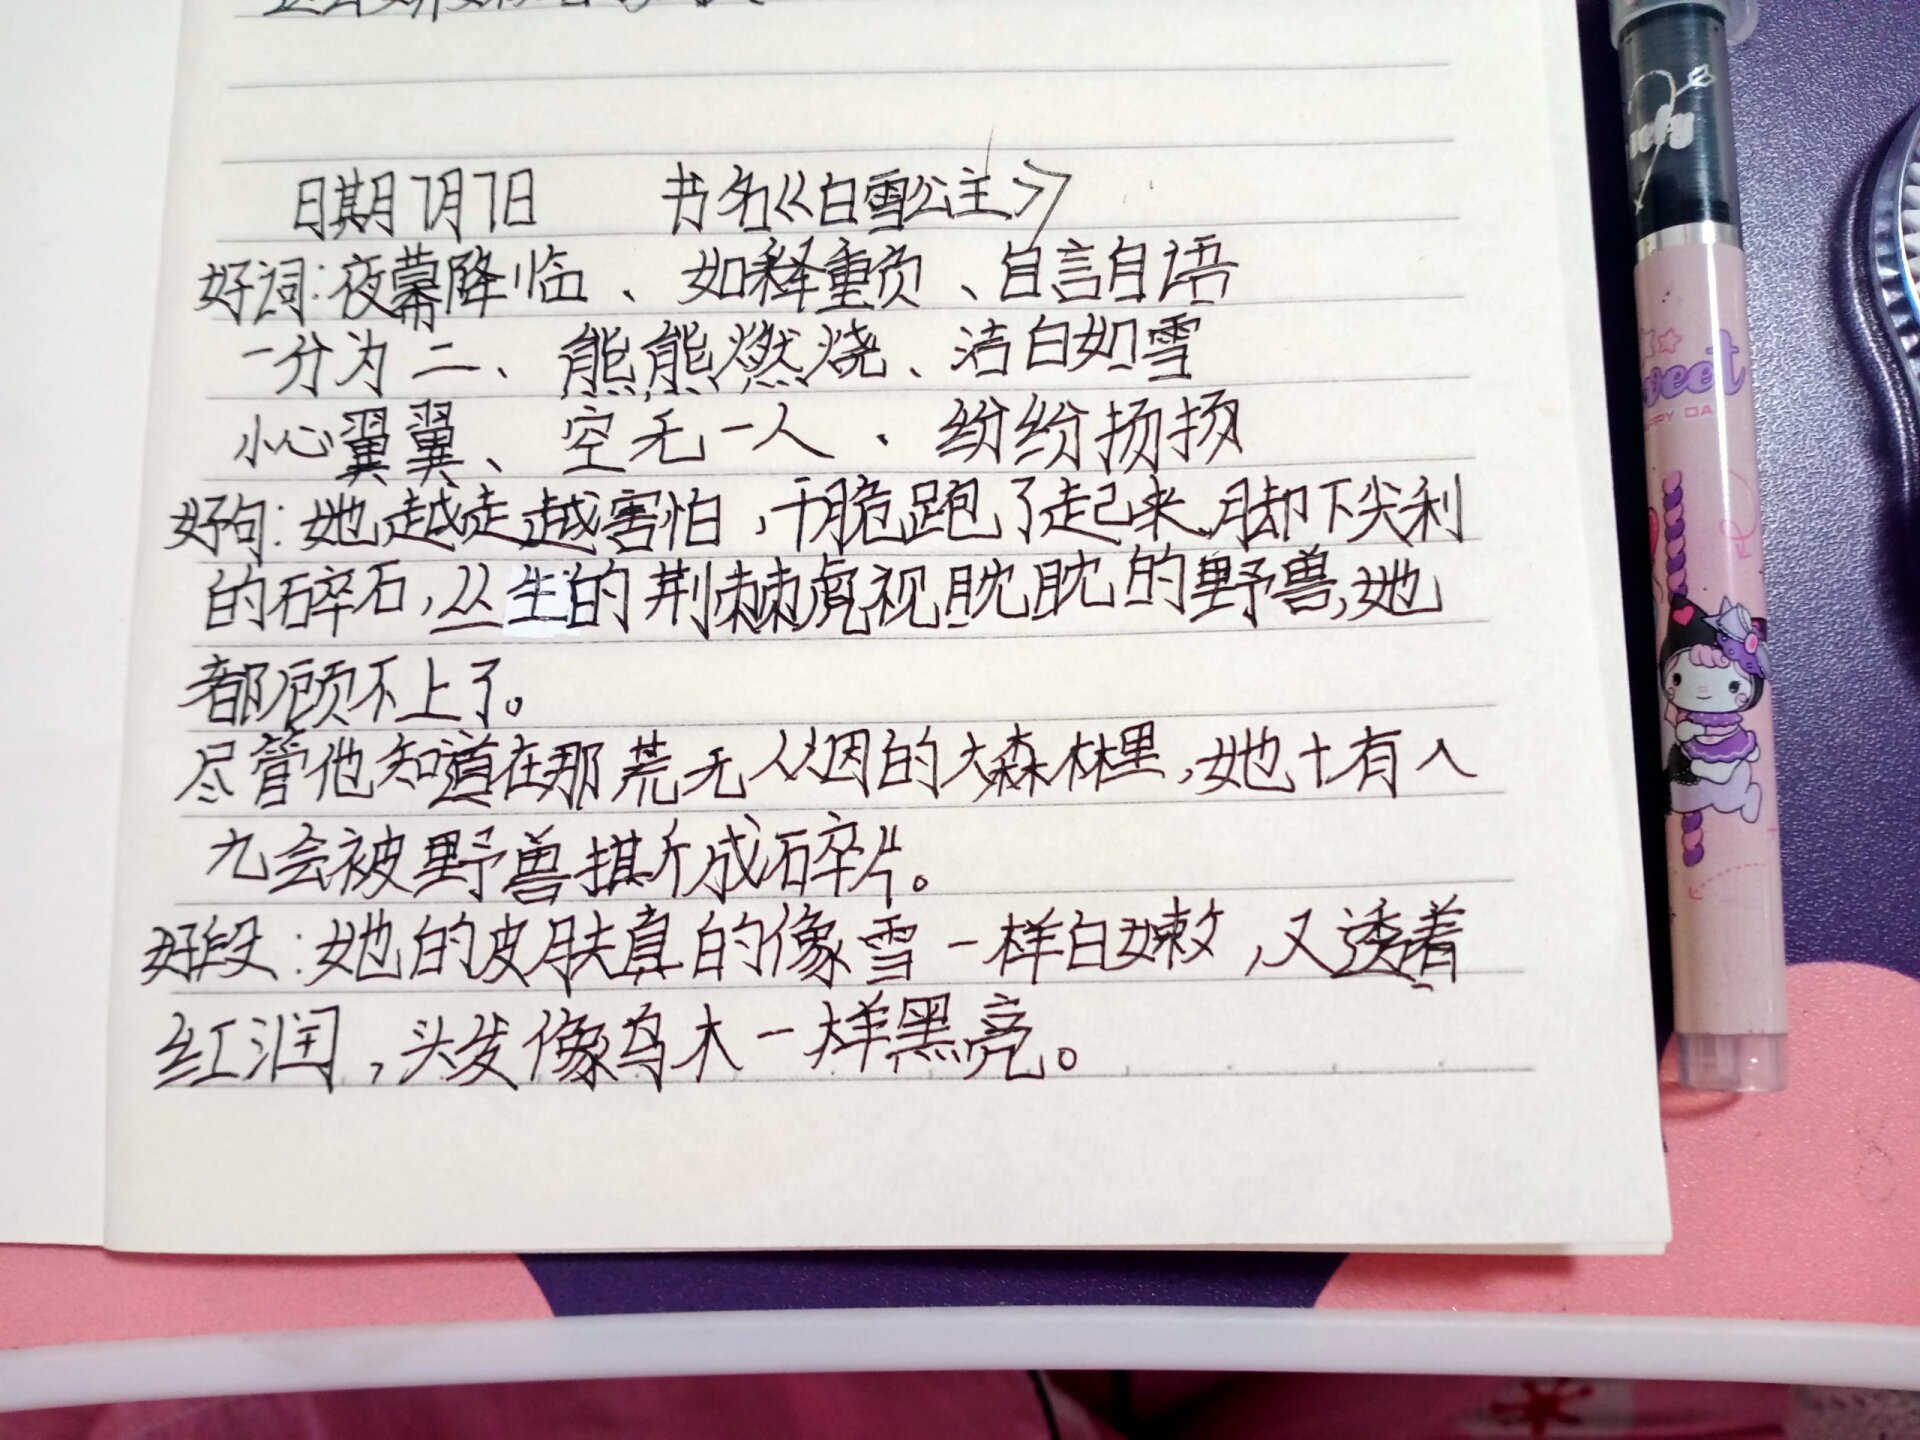 日期7月7日 书名《白雪公主》
好词:夜幕降临、如释重负、自言自语
一分为二、熊熊燃烧、洁白如雪
小心翼翼、空无一人、纷纷扬扬
好句:她越走越害怕,干脆跑了起来,脚下尖利
的碎石,丛生的荆棘虎视眈眈的野兽,她
都顾不上了。
尽管他知道在那荒无人烟的大森林里,她十有八
九会被野兽撕成碎片。
好段:她的皮肤真的像雪一样白嫩,又透着
红润,头发像乌木一样黑亮。
sweet